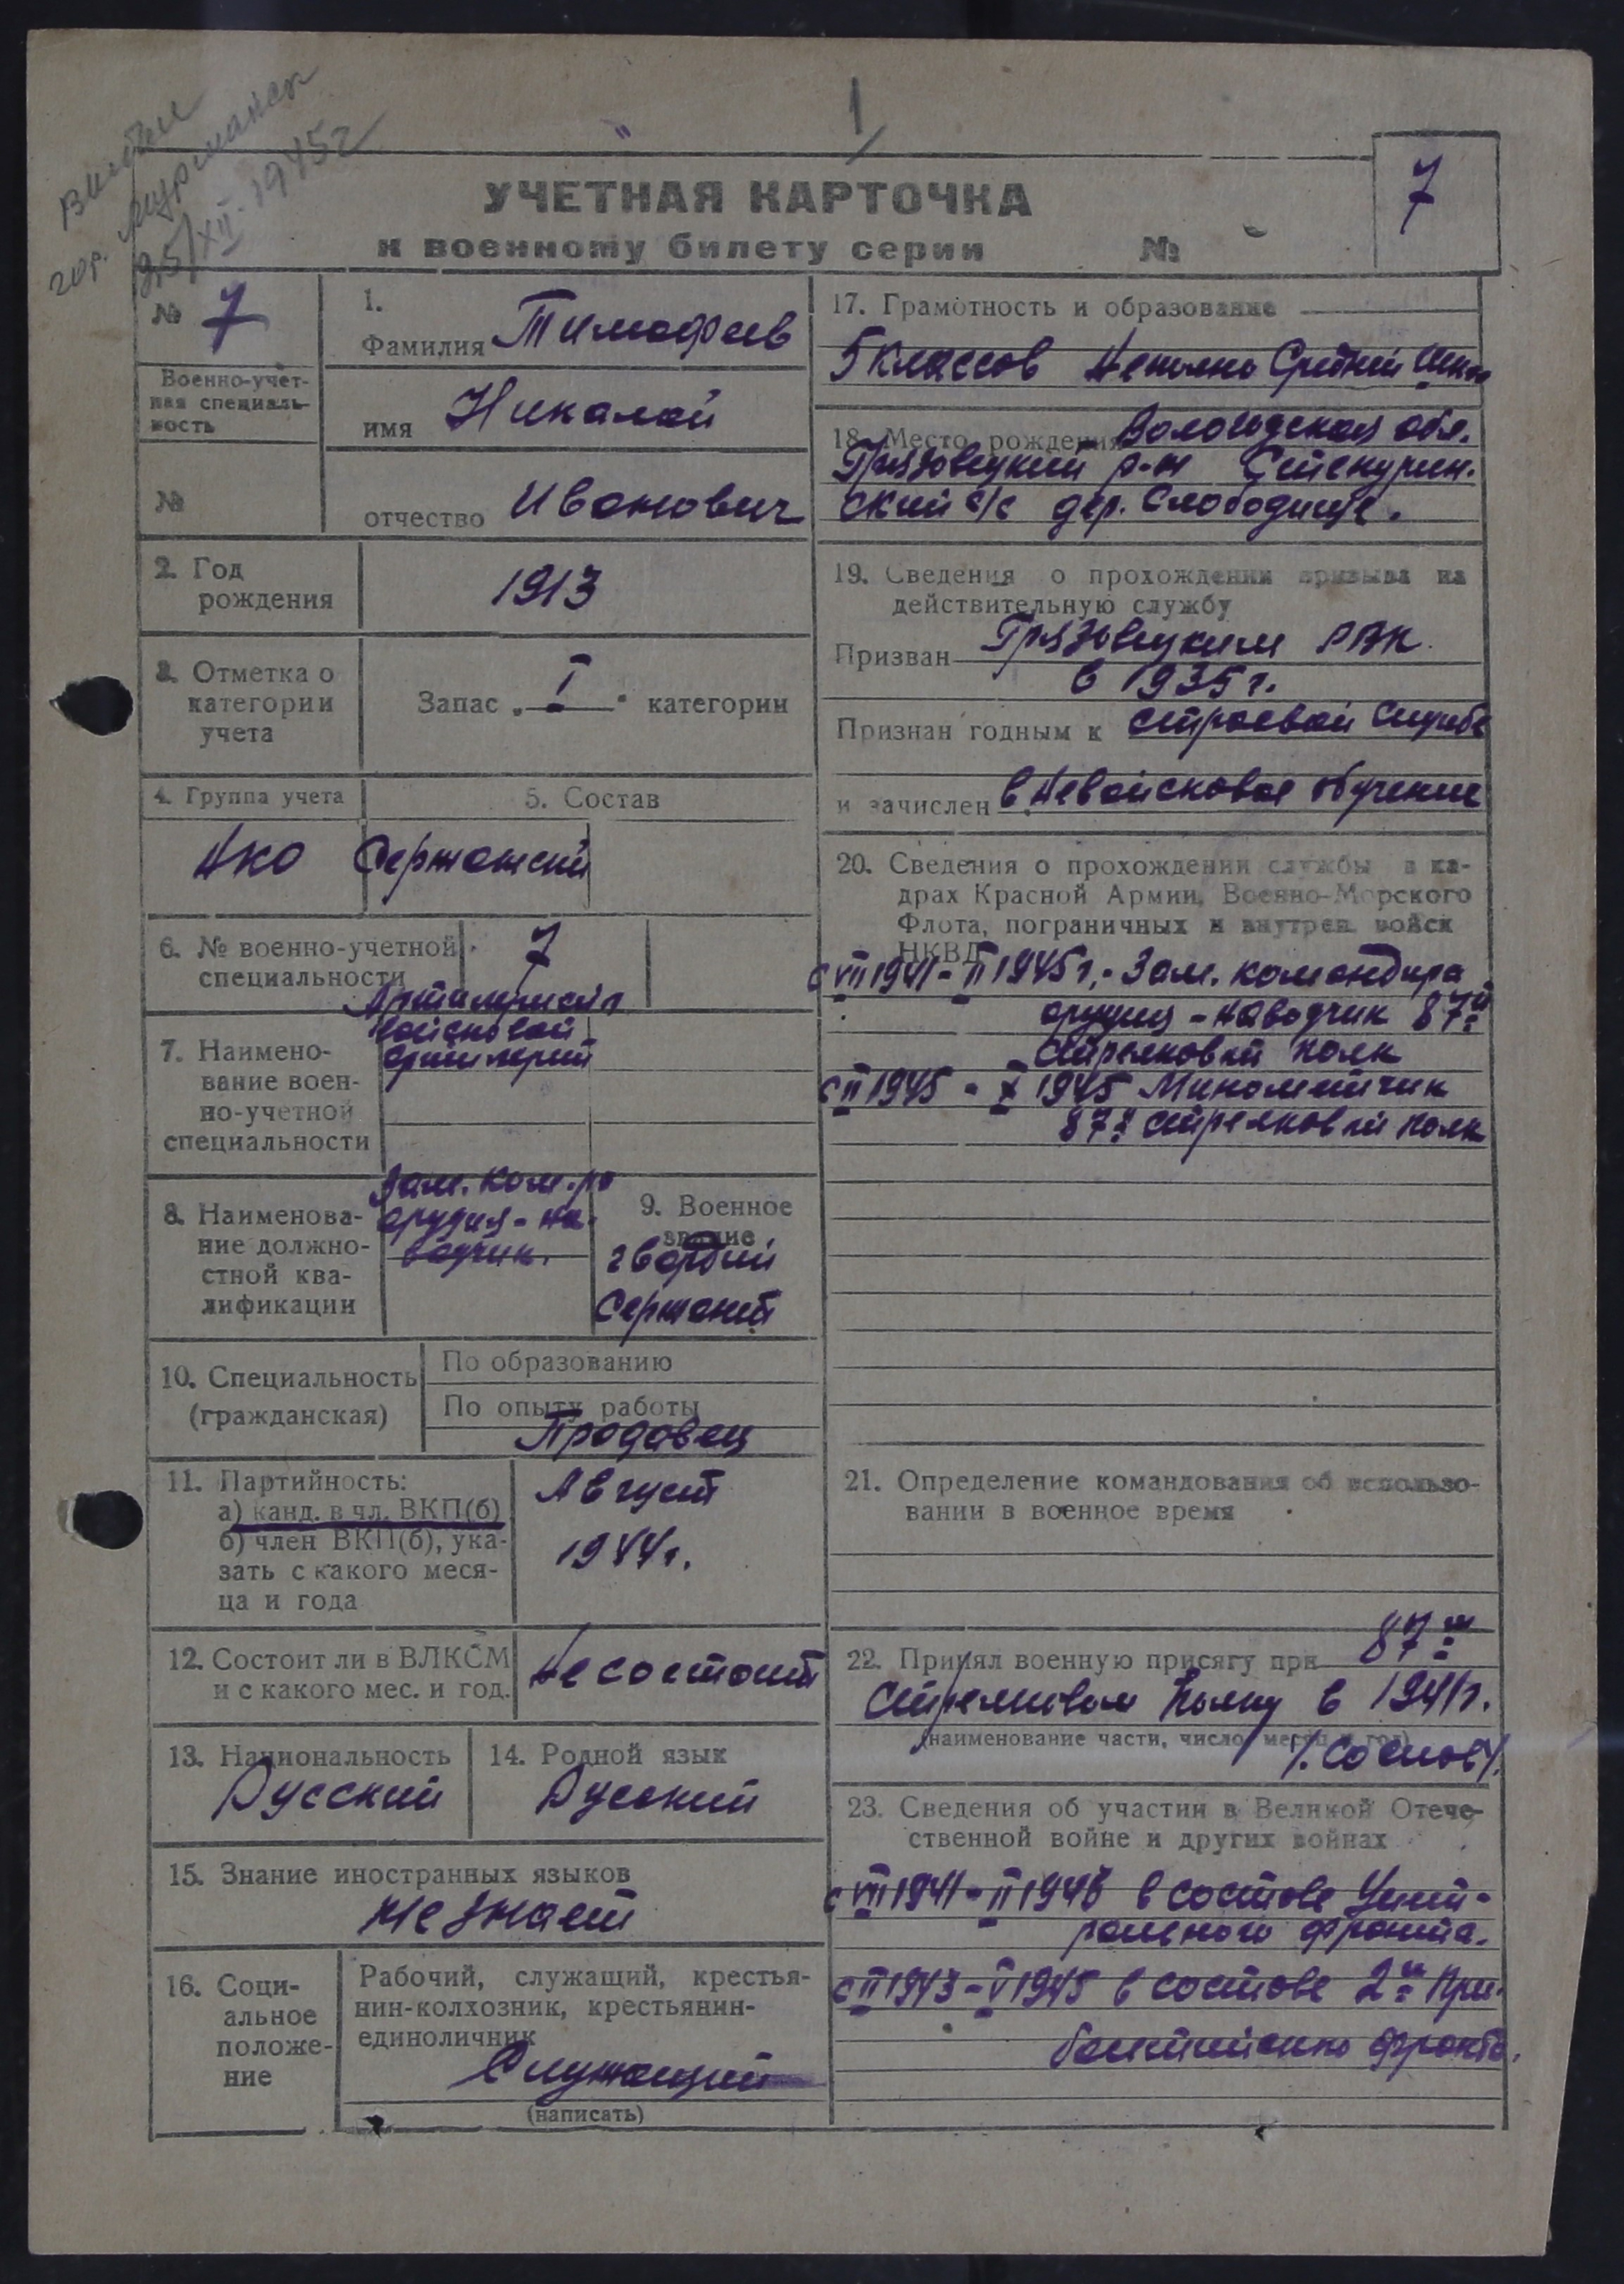 выбыл
гор. Мурманск
25/XII-1945г
1
7
УЧЕТНАЯ КАРТОЧКА
к военному билету серии №
№ 7
Военно-учет-
ная специаль-
ность
№
1.
Фамилия Тимофеев
имя Николай
отчество Иванович
2. Год
рождения
1913
3. Отметка о
категории
учета
Запас „I" категории
4. Группа учета
5. Состав
Сержантский
6. № военно-учетной
специальности
7
7. Наимено-
вание воен-
но-учетной
специальности
войсковой
артиллерии
8. Наименова-
ние должно-
стной ква-
лификации
Зам. ком-ра
орудия-на-
водчик.
9. Военное
звание
гвардии
Сержант
10. Специальность
(гражданская)
По образованию
По опыту работы
Продавец
11. Партийность:
а) канд. в чл. ВКП(б)
б) член ВКП(б), ука-
зать с какого меся-
ца и года
Август
1944г.
12. Состоит ли в ВЛКСМ
и с какого мес. и год.
Не состоит
13. Национальность
Русский
14. Родной язык
Русский
15. Знание иностранных языков
Не знает
16. Соци-
альное
положе-
ние
Рабочий, служащий, крестья-
нин-колхозник, крестьянин-
единоличник
Служащий
(написать)
17. Грамотность и образование
5 классов Неполно Средней
18. Место рождения Вологодская обл.
Грязовецкий р-н Степурин-
ский с/с дер. Слободище.
19. Сведения о прохождении призыва на
действительную службу
Призван Грязовецким РВК
в 1935г.
Признан годным к строевой службе
и зачислен в Невойсковое обучение
20. Сведения о прохождении службы в ка-
драх Красной Армии, Военно-Морского
Флота, пограничных и внутрен. войск
НКВД
с VIII 1941 - II 1945г. - Зам. командира
орудия - наводчик 87й
стрелковый полк
с II 1945 - X 1945 Минометчик
87й стрелковый полк
21. Определение командования об использо-
вании в военное время
22. Принял военную присягу при 87м
Стрелковом Полку в 1941г.
(наименование части, число, месяц и год)
23. Сведения об участии в Великой Отече-
ственной войне и других войнах
с VIII 1941 - II 1943 в составе Цент-
рального фронта.
с II 1943 - V 1945 в составе 2й При-